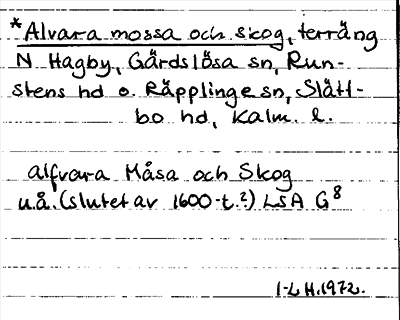 *Alvara mossa och skog, terräng
N Hagby, Gårdslösa sn, Run-
stens hd o. Räpplinge sn, Slätt-
bo hd, Kalm. l.
alfvara Måsa och Skog
u.å. (slutet av 1600-t.?) LSA G8
I-L H.1972.